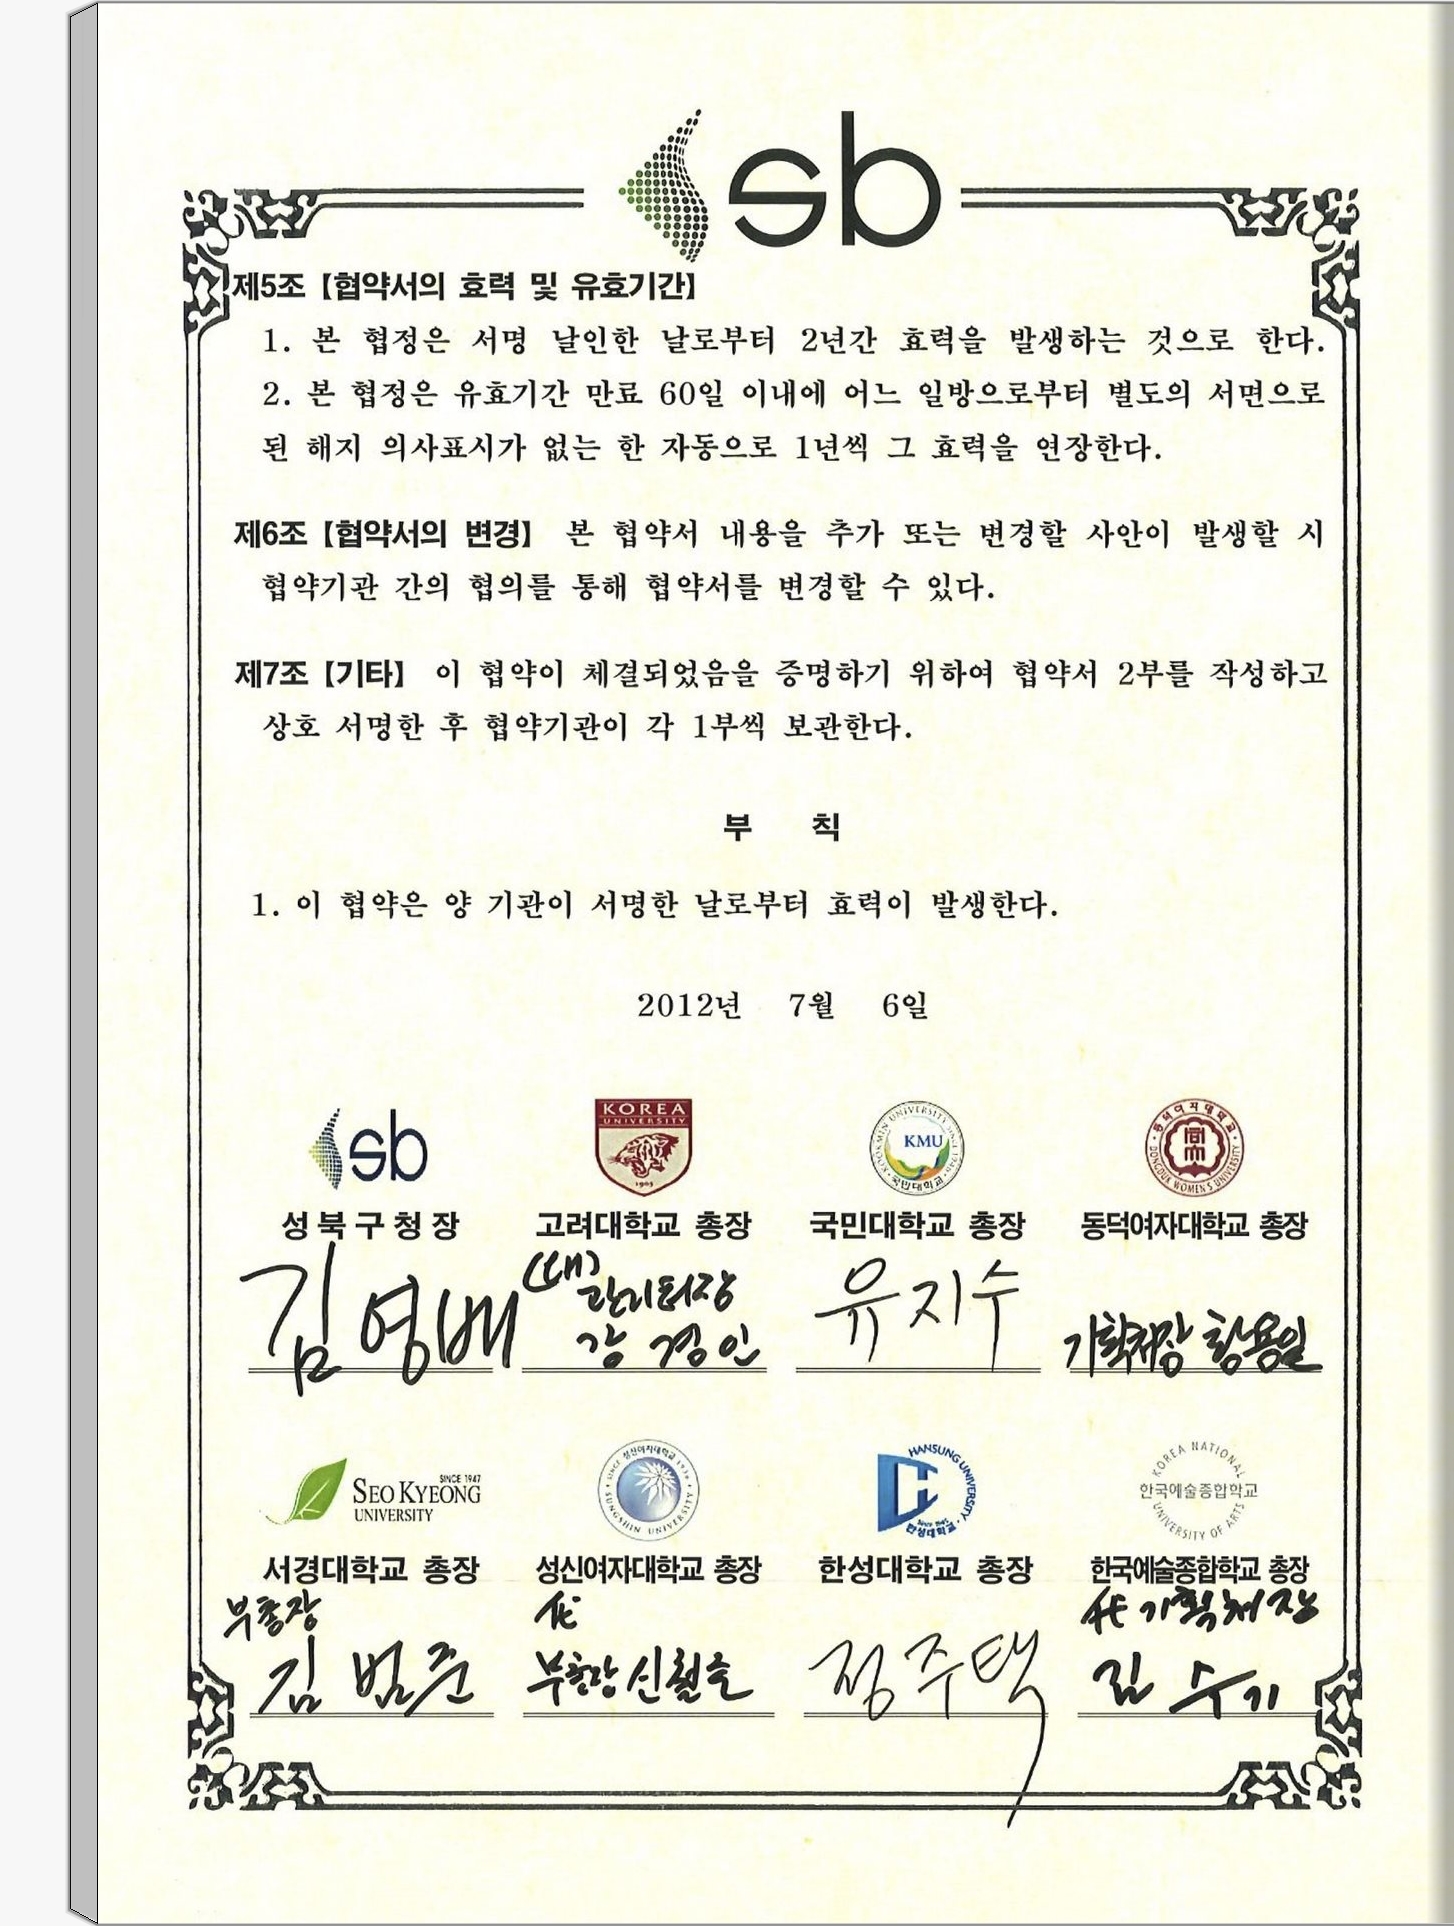 sb
제5조【협약서의 효력 및 유효기간】
1. 본 협정은 서명 날인한 날로부터 2년간 효력을 발생하는 것으로 한다.
2. 본 협정은 유효기간 만료 60일 이내에 어느 일방으로부터 별도의 서면으로
된 해지 의사표시가 없는 한 자동으로 1년씩 그 효력을 연장한다.
제6조【협약서의 변경】 본 협약서 내용을 추가 또는 변경할 사안이 발생할 시
협약기관 간의 협의를 통해 협약서를 변경할 수 있다.
제7조【기타】 이 협약이 체결되었음을 증명하기 위하여 협약서 2부를 작성하고
상호 서명한 후 협약기관이 각 1부씩 보관한다.
부 칙
1. 이 협약은 양 기관이 서명한 날로부터 효력이 발생한다.
2012년 7월 6일
sb
KOREA
UNIVERSITY
1905
KOOKMIN UNIVERSITY SINCE 1946
KMU
국민대학교
동덕여자대학교
DONGDUK WOMEN'S UNIVERSITY
성북구청장
고려대학교 총장
국민대학교 총장
동덕여자대학교 총장
김영배
(대)
관리처장
강경인
유지수
기획처장 황용일
SINCE 1947
SEO KYEONG
UNIVERSITY
성신여자대학교 1936
SINCE
SUNGSHIN UNIVERSITY
HANSUNG UNIVERSITY
Since 1945
한성대학교
KOREA NATIONAL
한국예술종합학교
UNIVERSITY OF ARTS
서경대학교 총장
성신여자대학교 총장
한성대학교 총장
한국예술종합학교 총장
부총장
김범준
代
부총장
정주택
代 기획처장
김수기